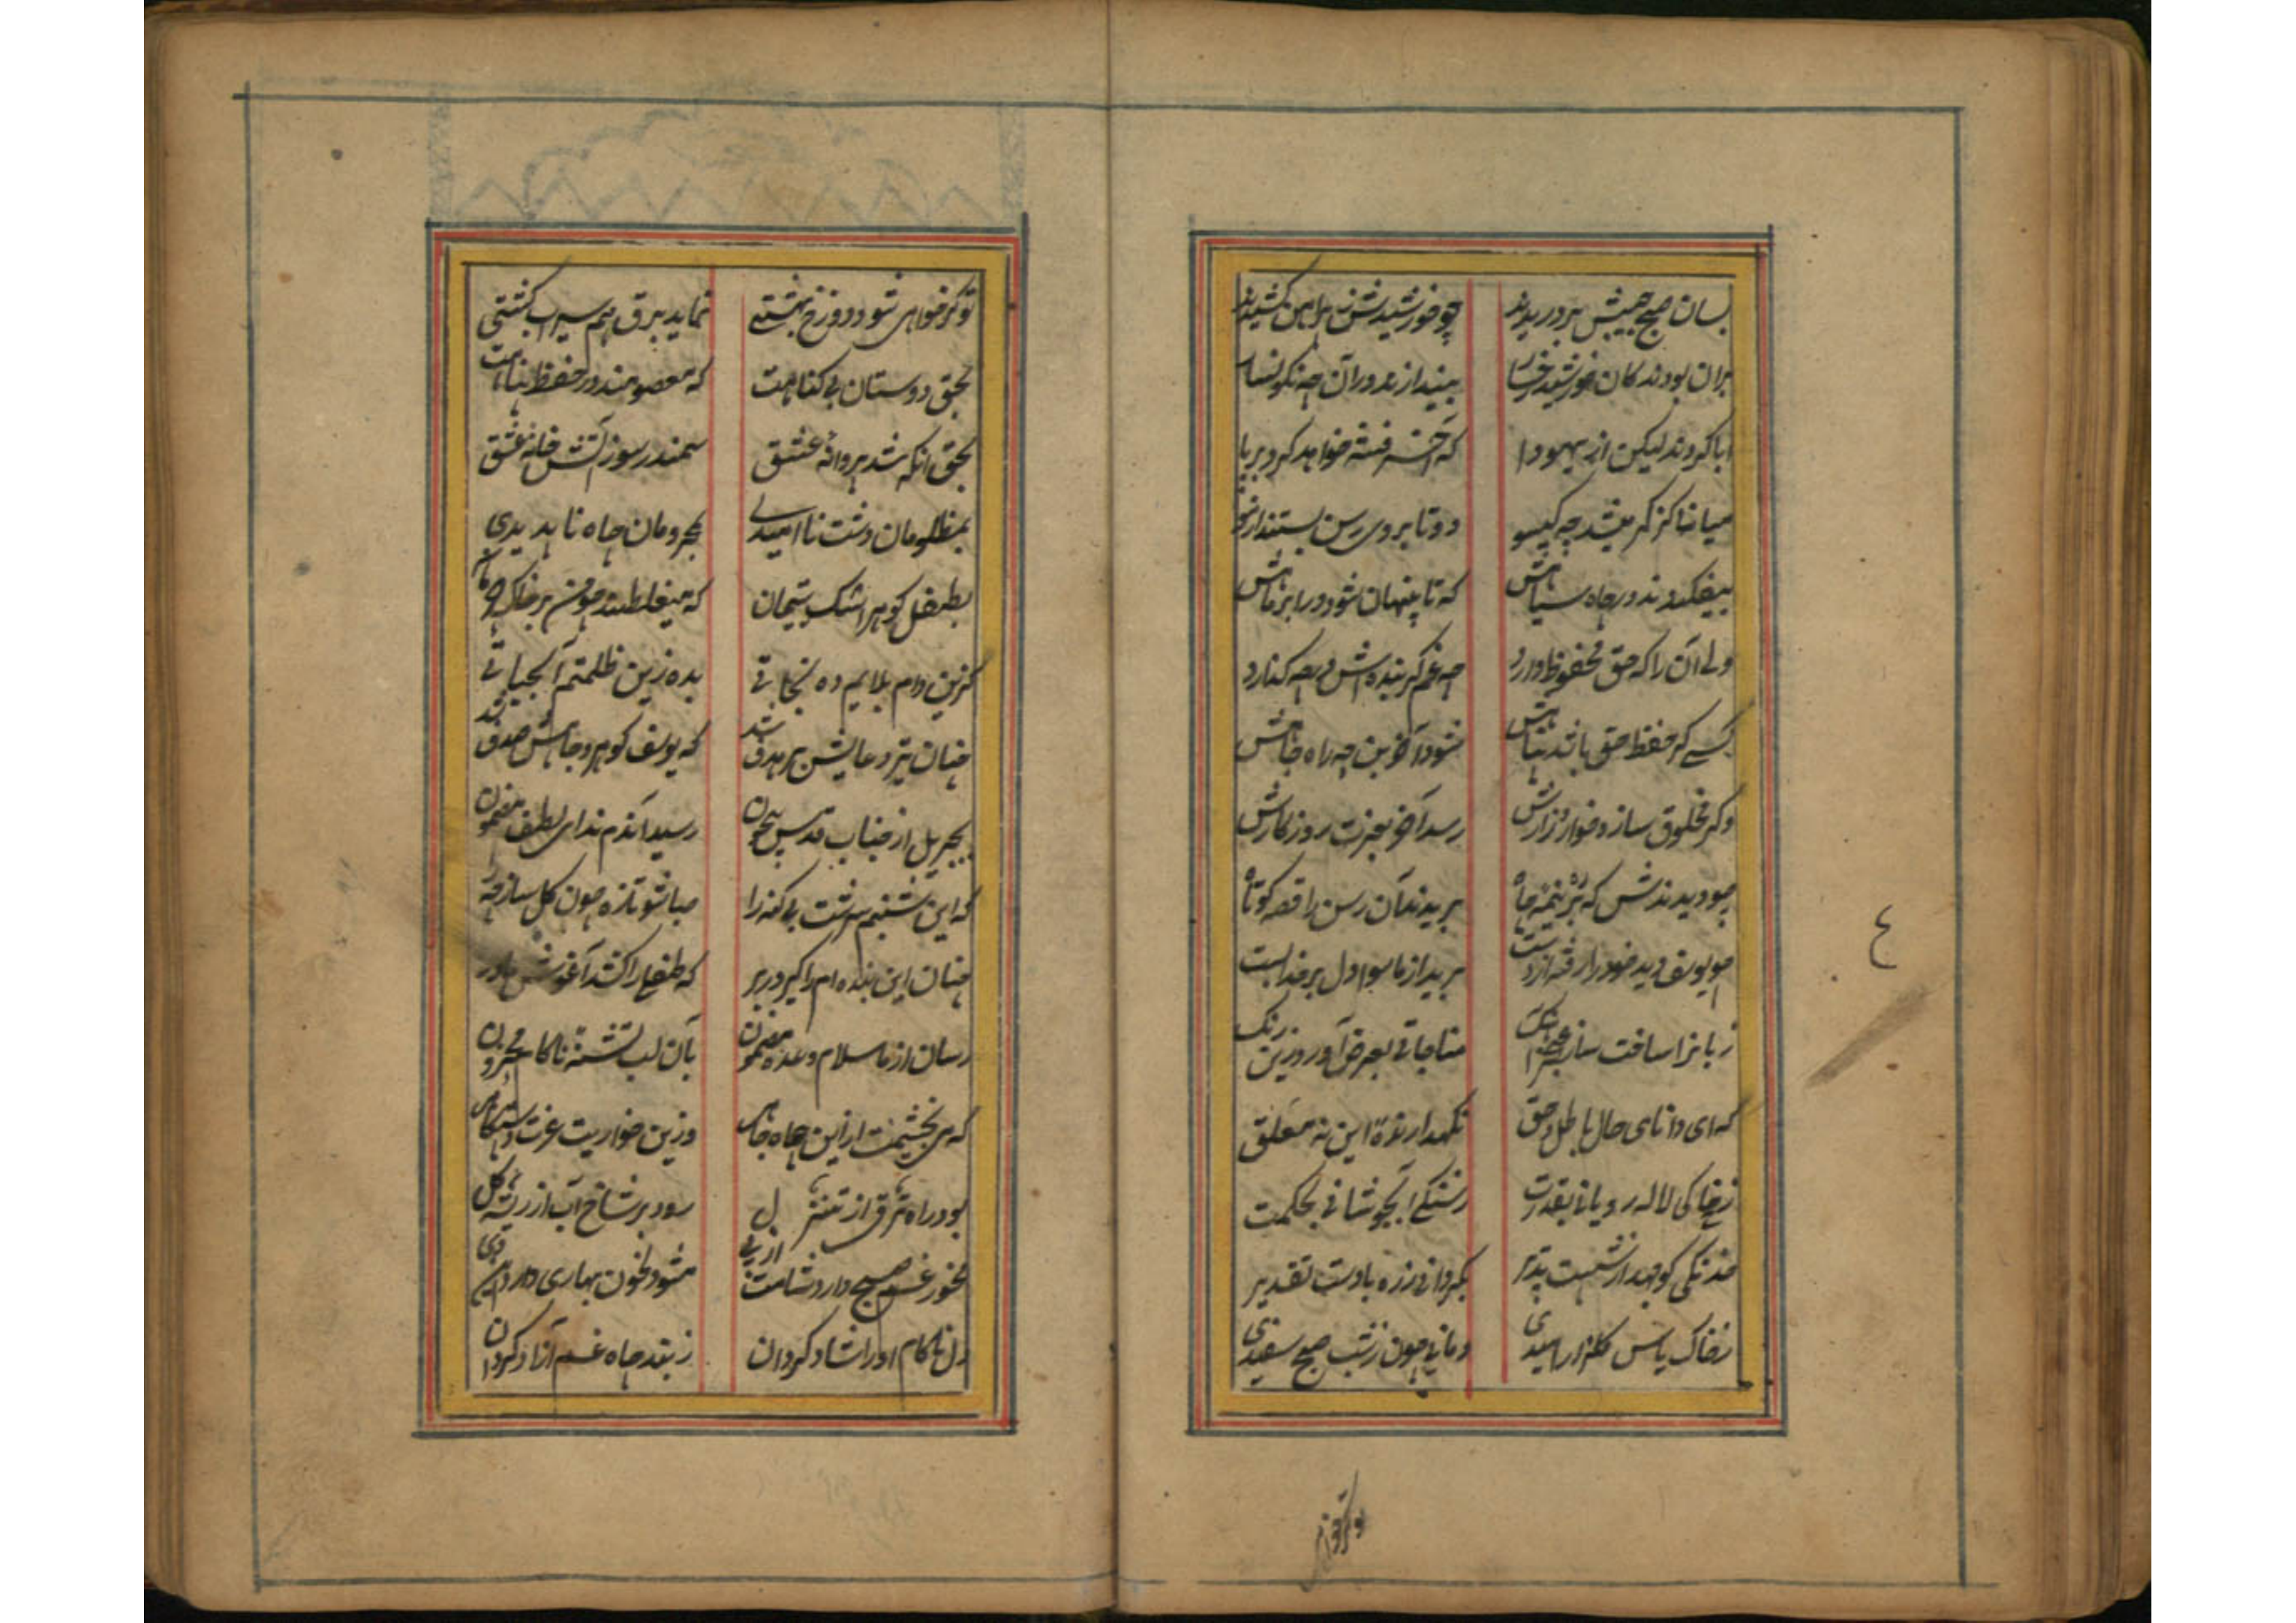 بسان صبح جیبش بردریدند چو خورشیدش ز پیراهن کشیدند
بران بودند کان خورشید رخسار بیندازند دران چه نگونسار
ابا کردند لیکن از یهودا که آخر فتنه خواهد کرد برپا
میانبا کز کمر میشد چه گیسو دوتا بروی رسن بستند از مو
بیفکندند در چاه سیاهش که تا پنهان شود در ابر ماهش
ولی آن را که حق محفوظ دارد چه غم گر بنده‌اش در چه گذارد
کسی کز حفظ حق باشد پناهش شود آخر بن چه راه جاهش
وگر مخلوق سازد خوار و زارش رسد آخر بعزت روزگارش
چو دیدندش که در نیمه چاه بریدند آن رسن را قصه کوتاه
چو یوسف دید خود را رفته از دست برید از ماسوا دل بر خدا بست
زبانرا ساخت ساز عجز آهنگ مناجاتی بعرض آورد زین رنگ
که ای دانای حال باطل و حق نگهدارنده این نه معلق
ز خاکی لاله رویانی بقدرت ز سنگی آب جوشانی بحکمت
خدنگی کو جهد از شست تدبیر بگردانی ز ره با دست تقدیر
ز خاک یاس گلزار امیدی دمانی چون ز شب صبح سفیدی
تو گر خواهی
تو گر خواهی شود دوزخ بهشتی نماید برق هم سیراب کشتی
بحق دوستان بی گناهت که معصومند در حفظ پناهت
بحق آنکه شد پروانه عشق سمندر سوز آتش خانه عشق
بمظلومان دشت ناامیدی بمحرومان چاه ناپدیدی
بطفل گوهر اشک یتیمان که میغلطند چون بر خاک
کزین دام بلایم ده نجاتی بده زین ظلمتم آب حیاتی
چنان تیر دعایش بر هدف شد که یوسف گوهر و چاهش صدف شد
بجبریل از جناب قدس بیچون رسید آندم ندای لطف مضمون
که این شبنم سرشت بی گنه را صبا شو تازه چون گل ساز چه را
چنان این بنده‌ام را گیر در بر که طفلی را کشد آغوش مادر
رسان از ما سلام وعده مضمون بآن لب تشنه ناکام محزون
که می بخشیمت از این چاه جاهی وزین خواریت عزت دستگاهی
بود راه ترقی از تنزل رود بر شاخ آب از ریشه گل
مخور غم صبح دارد شامت از پی مشو دلخون بهاری دارد این دی
دل ناکام او را شاد گردان ز بند چاه غم آزاد گردان
٤